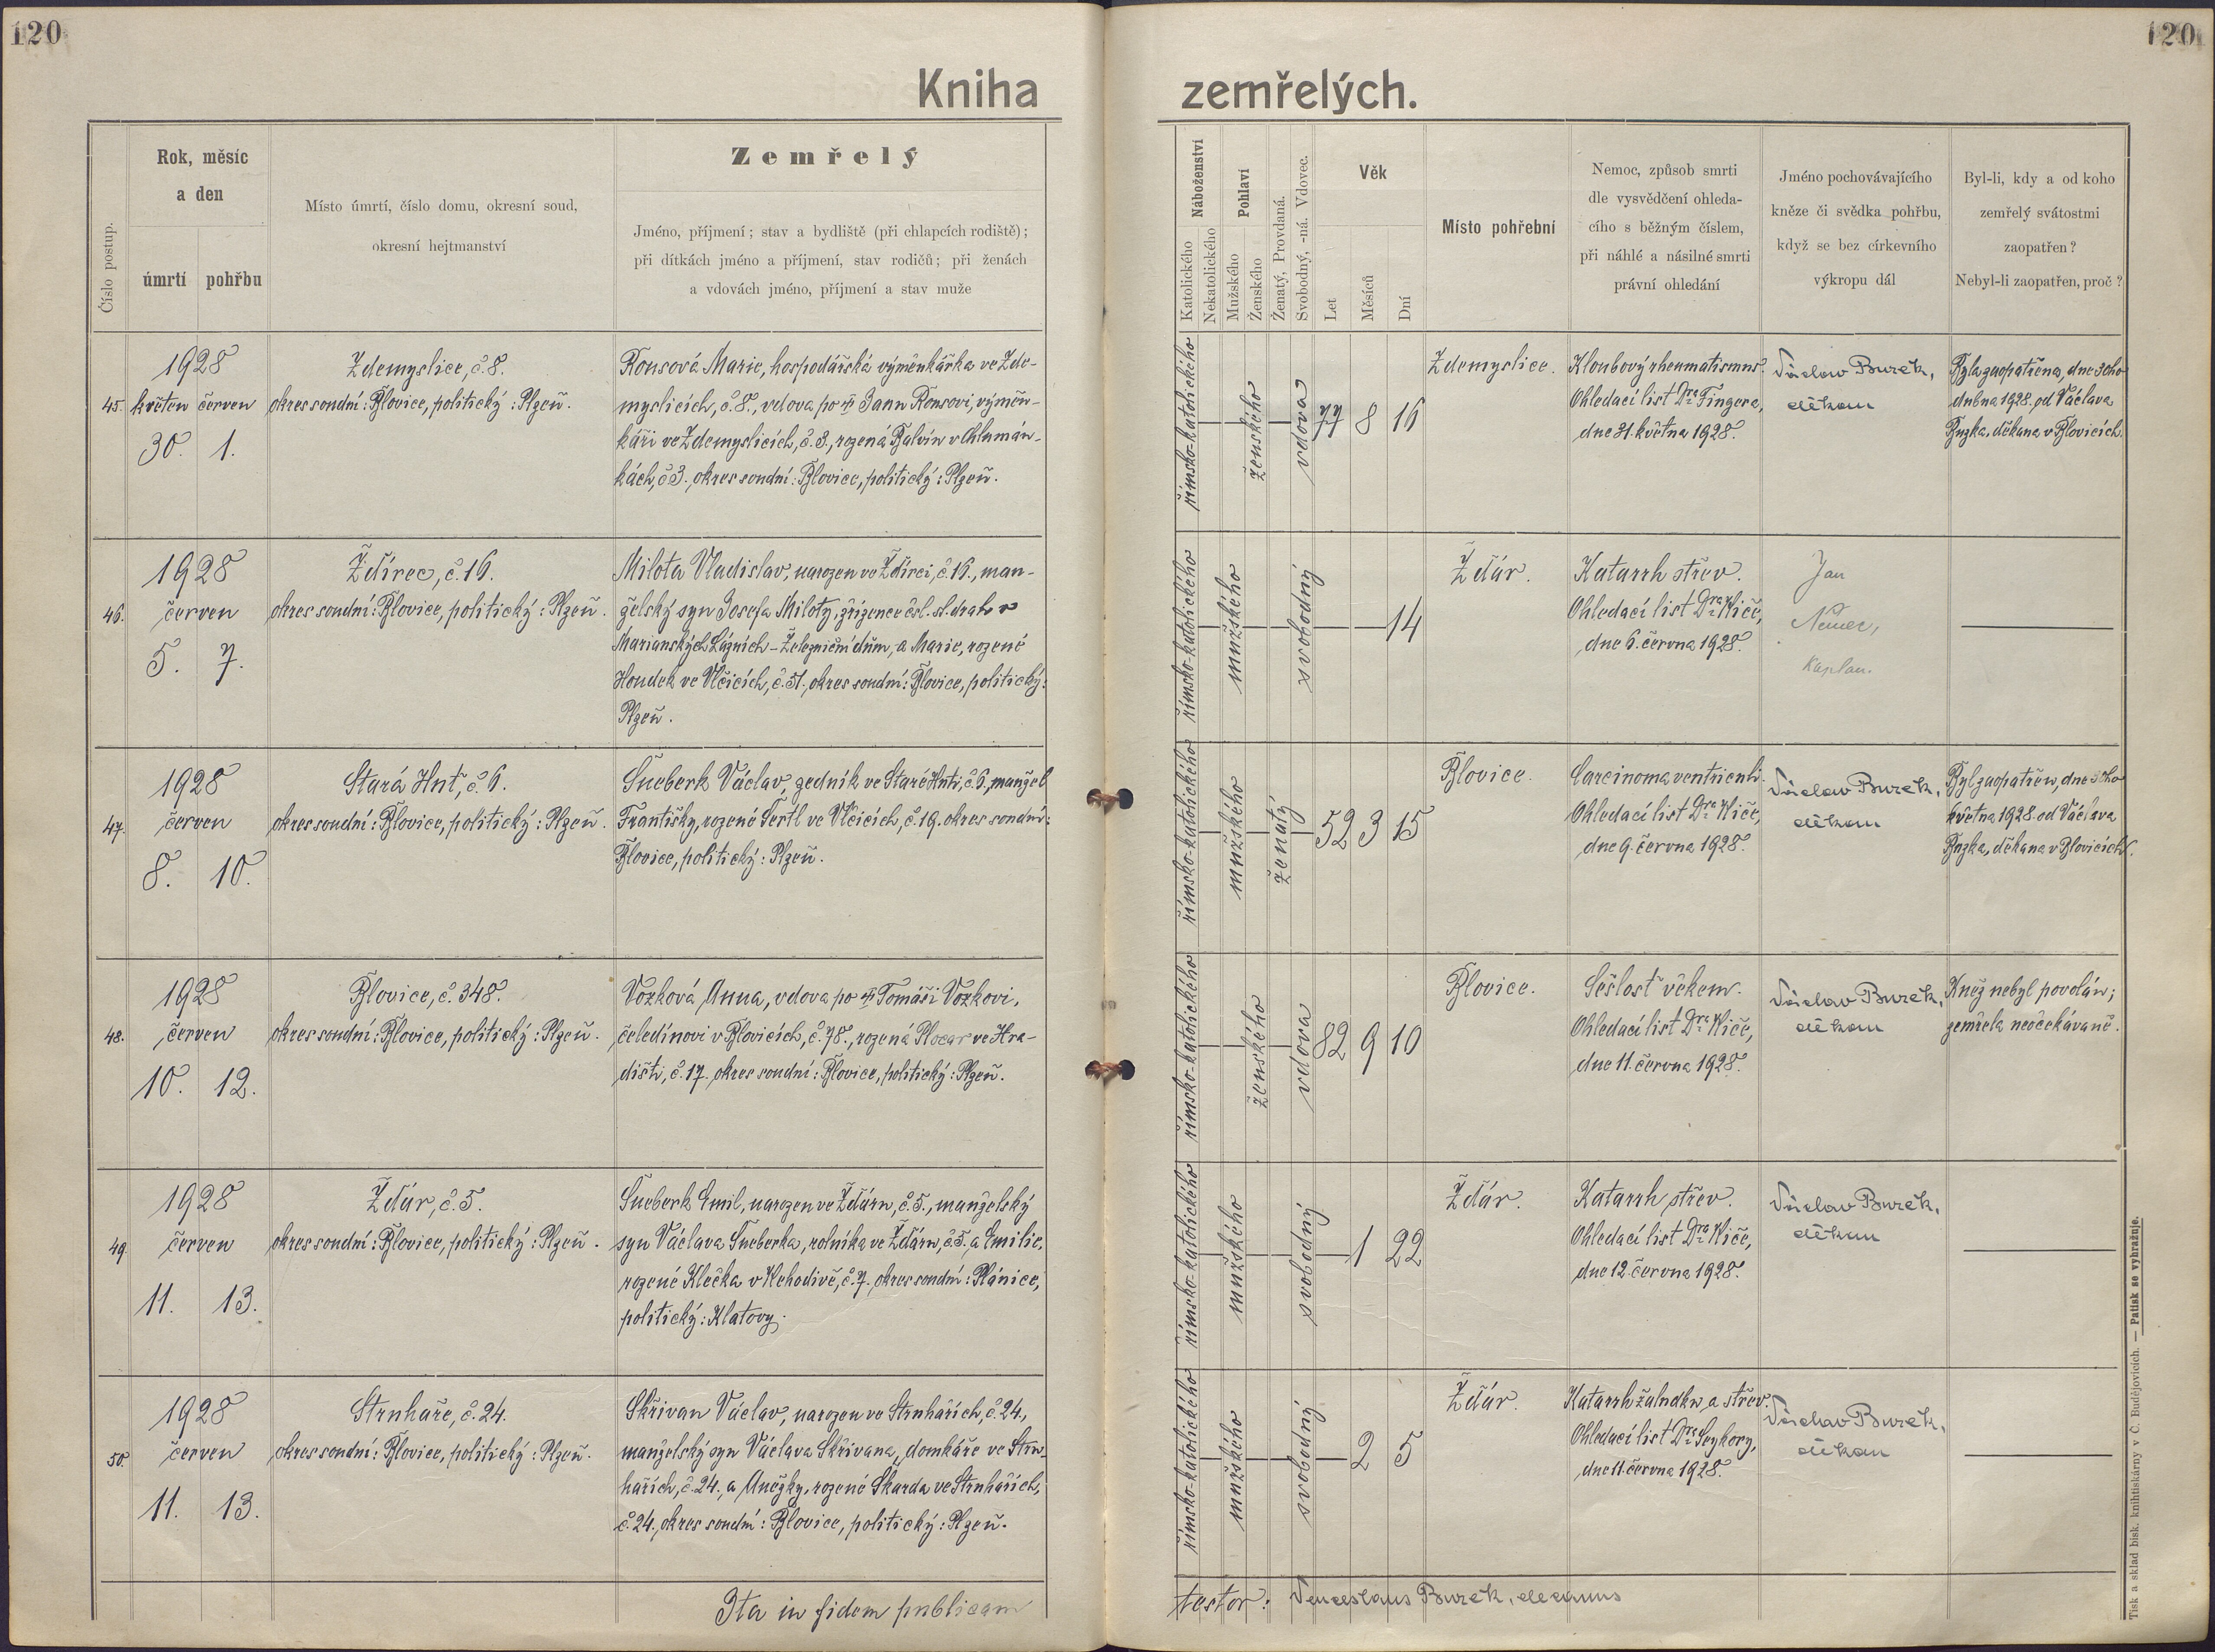 120
120
Kniha
zemřelých.
Číslo postup.
Rok, měsíc
a den
úmrtí pohřbu
Místo úmrtí, číslo domu, okresní soud,
okresní hejtmanství
Zemřelý
Jméno, příjmení; stav a bydliště (při chlapcích rodiště);
při dítkách jméno a příjmení, stav rodičů; při ženách
a vdovách jméno, příjmení a stav muže
Náboženství
Katolického
Nekatolického
Pohlaví
Mužského
Ženského
Ženatý, Provdaná.
Svobodný, -ná. Vdovec.
Věk
Let
Měsíců
Dní
Místo pohřební
Nemoc, způsob smrti
dle vysvědčení ohleda-
cího s běžným číslem,
při náhlé a násilné smrti
právní ohledání
Jméno pochovávajícího
kněze či svědka pohřbu,
když se bez církevního
výkropu dál
Byl-li, kdy a od koho
zemřelý svátostmi
zaopatřen?
Nebyl-li zaopatřen, proč?
45.
1928
květen červen
30. 1.
Zdemyslice, č. 8.
okres soudní: Blovice, politický: Plzeň.
Ronsová Marie, hospodářská výměnkářka ve Zde-
myslicích, č. 8., vdova po † Janu Ronsovi, výměn-
káři ve Zdemyslicích, č. 8., rozená Balvín v Chlumán-
kách, č. 3., okres soudní: Blovice, politický: Plzeň.
římsko-katolického
ženského
vdova
77 8 16
Zdemyslice.
Kloubový rheumatismus.
Ohledací list Dra Fingera,
dne 31. května 1928.
Václav Buzek,
děkan
Byla zaopatřena, dne 30ho
dubna 1928. od Václava
Buzka, děkana v Blovicích.
46.
1928
červen
5. 7.
Ždírec, č. 16.
okres soudní: Blovice, politický: Plzeň.
Milota Vladislav, narozen ve Ždírci, č. 16., man-
želský syn Josefa Miloty, zřízence čsl. st. drah v
Marianských Lázních - Železniční dům, a Marie, rozené
Houdek ve Vlčicích, č. 51., okres soudní: Blovice, politický:
Plzeň.
římsko-katolického
mužského
svobodný
14
Žďár.
Katarrh střev.
Ohledací list Dra Kiče,
dne 6. června 1928.
Jan
Němec,
kaplan.
47.
1928
červen
8. 10.
Stará Huť, č. 6.
okres soudní: Blovice, politický: Plzeň.
Šneberk Václav, zedník ve Staré Huti, č. 6., manžel
Františky, rozené Šertl ve Vlčicích, č. 19. okres soudní:
Blovice, politický: Plzeň.
římsko-katolického
mužského
ženatý
52 3 15
Blovice.
Carcinoma ventriculi.
Ohledací list Dra Kiče,
dne 9. června 1928.
Václav Buzek,
děkan
Byl zaopatřen, dne
května 1928. od Václava
Buzka, děkana v Blovicích.
48.
1928
červen
10. 12.
Blovice, č. 348.
okres soudní: Blovice, politický: Plzeň.
Vozková Anna, vdova po † Tomáši Vozkovi,
čeledínovi v Blovicích, č. 78., rozená Plocar ve Hra-
dišti, č. 17. okres soudní: Blovice, politický: Plzeň.
římsko-katolického
ženského
vdova
82 9 10
Blovice.
Sešlosť věkem.
Ohledací list Dra Kiče,
dne 11. června 1928.
Václav Buzek,
děkan
Kněz nebyl povolán;
zemřela neočekávaně.
49.
1928
červen
11. 13.
Žďár, č. 5.
okres soudní: Blovice, politický: Plzeň.
Šneberk Emil, narozen ve Žďáru, č. 5., manželský
syn Václava Šneberka, rolníka ve Žďáru, č. 5. a Emilie,
rozené Klečka v Kehodivě, č. 7. okres soudní: Plánice,
politický: Klatovy.
římsko-katolického
mužského
svobodný
1 22
Žďár.
Katarrh střev.
Ohledací list Dra Kiče,
dne 12. června 1928.
Václav Buzek,
děkan
50.
1928
červen
11. 13.
Struhaře, č. 24.
okres soudní: Blovice, politický: Plzeň.
Skřivan Václav, narozen ve Struhařích, č. 24.,
manželský syn Václava Skřivana, domkáře ve Stru-
hařích, č. 24., a Anežky, rozené Skarda ve Struhařích,
č. 24., okres soudní: Blovice, politický: Plzeň.
římsko-katolického
mužského
svobodný
2 5
Žďár.
Katarrh žaludku a střev.
Ohledací list Dra Sýkory,
dne 11. června 1928.
Václav Buzek,
děkan
Ita in fidem publicam
testor: Venceslaus Buzek, decanus
Tisk a sklad bisk. knihtiskárny v Č. Budějovicích. — Patisk se vyhražuje.